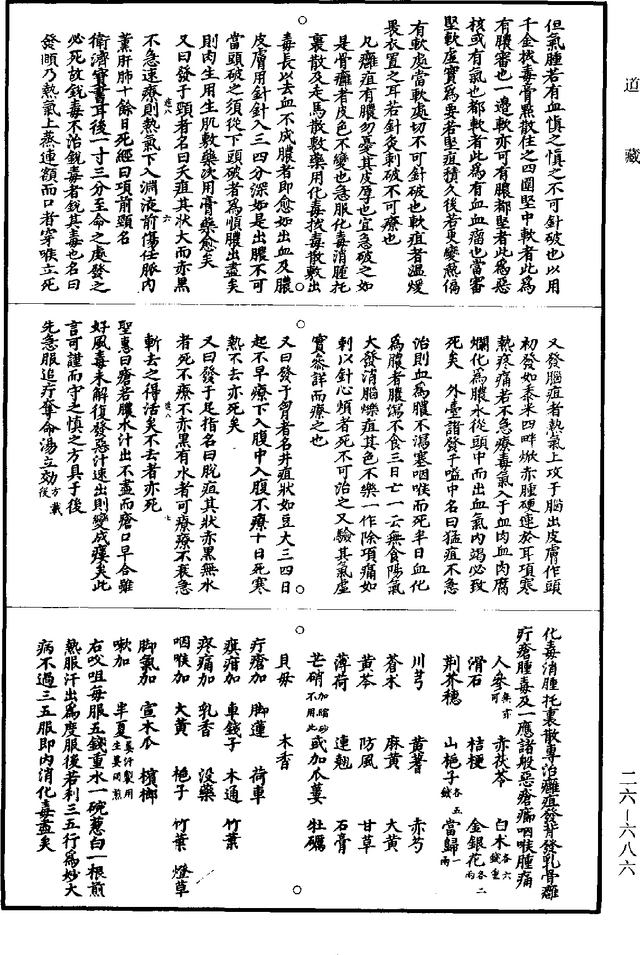 道藏
但氣腫若有血慎之慎之不可針破也以用
千金拔毒膏點散住之四圍堅中軟者此為
有膿審也一邊軟亦可有膿都堅者此為惡
核或有氣也都軟者此為有血血瘤也當審
堅軟虛實為要若堅疽積久後若更變熱偏
有軟處當軟處切不可針破也軟疽者溫煖
畏衣置之耳若針灸刺破不可療也
凡癰疽有膿勿憂其皮厚也宜急破之如
是骨癰者皮色不變也急服化毒消腫托
裏散及走馬散敷藥用化毒拔毒散敷出
毒長以去血不成膿者即愈如出血及膿
皮膚用針針入三四分深如是出膿不可
當頭破之須從下頭破者為順膿出盡矣
則肉生用生肌敷藥次用膏藥愈矣
又曰發于頸者名曰夭疽其狀大而赤黑
不急速療則熱氣下入淵液前傷任脈內
薰肝肺十餘日死經曰項前頸名
衛濟寶書耳後一寸三分至命之處發之
必死故銳毒不治銳毒者銳其毒也名曰
發頤乃熱氣上蒸連顊而口者穿喉立死
又發腦疽者熱氣上攻于腦出皮膚作頭
初發如黍米四畔焮赤腫硬連於耳項寒
熱疼痛若不急療毒氣入于血肉血肉腐
爛化為膿水從頭中而出血氣內竭必致
死矣　外臺諸發于嗌中名曰猛疽不急
治則血為膿不瀉塞咽喉而死半日血化
為膿者膿瀉不食三日亡一云無食陽氣
大發消腦爍疽其色不樂一作除項痛如
刺以針心煩者死不可治之又驗其氣虛
實叅詳而療之也
又曰發于胷者名井疽狀如豆大三四日
起不早療下入腹中入腹不療十日死寒
熱不去亦死矣
又曰發于足指名曰脫疽其狀赤黑無水
者死不療不赤黑有水者可療療不衰急
斬去之得活矣不去者亦死
聖惠曰瘡若膿水汁出不盡而瘡口早合雖
好風毒未解復發惡汁速出則變成瘻矣此
言可謹而守之慎之方具于後
先急服追疔奪命湯立効方載後
化毒消腫托裏散專治癰疽發背發乳骨癰
疔瘡腫毒及一應諸般惡瘡癤咽喉腫痛
人參無亦可　赤茯苓　白朮各六錢重
滑石　桔梗　金銀花各二兩
荊芥穗　山梔子各五錢　當歸一兩
川芎　黃蓍　赤芍
蒼朮　麻黃　大黃
黃芩　防風　甘草
薄荷　連翹　石膏
芒硝加縮砂不用此　或加瓜蔞　牡礪
貝母　木香
疔瘡加　脚蓮　荷車
癀疳加　車錢子　木通　竹葉
疼痛加　乳香　没藥
咽喉加　大黃　梔子　竹葉　燈草
脚氣加　宣木瓜　檳榔
嗽加　半夏薑汁製用生薑同煎
右㕮咀每服五錢重水一碗葱白一根煎
熱服汗出為度服後若利三五行為妙大
病不過三五服即內消化毒盡矣
二六-六八六